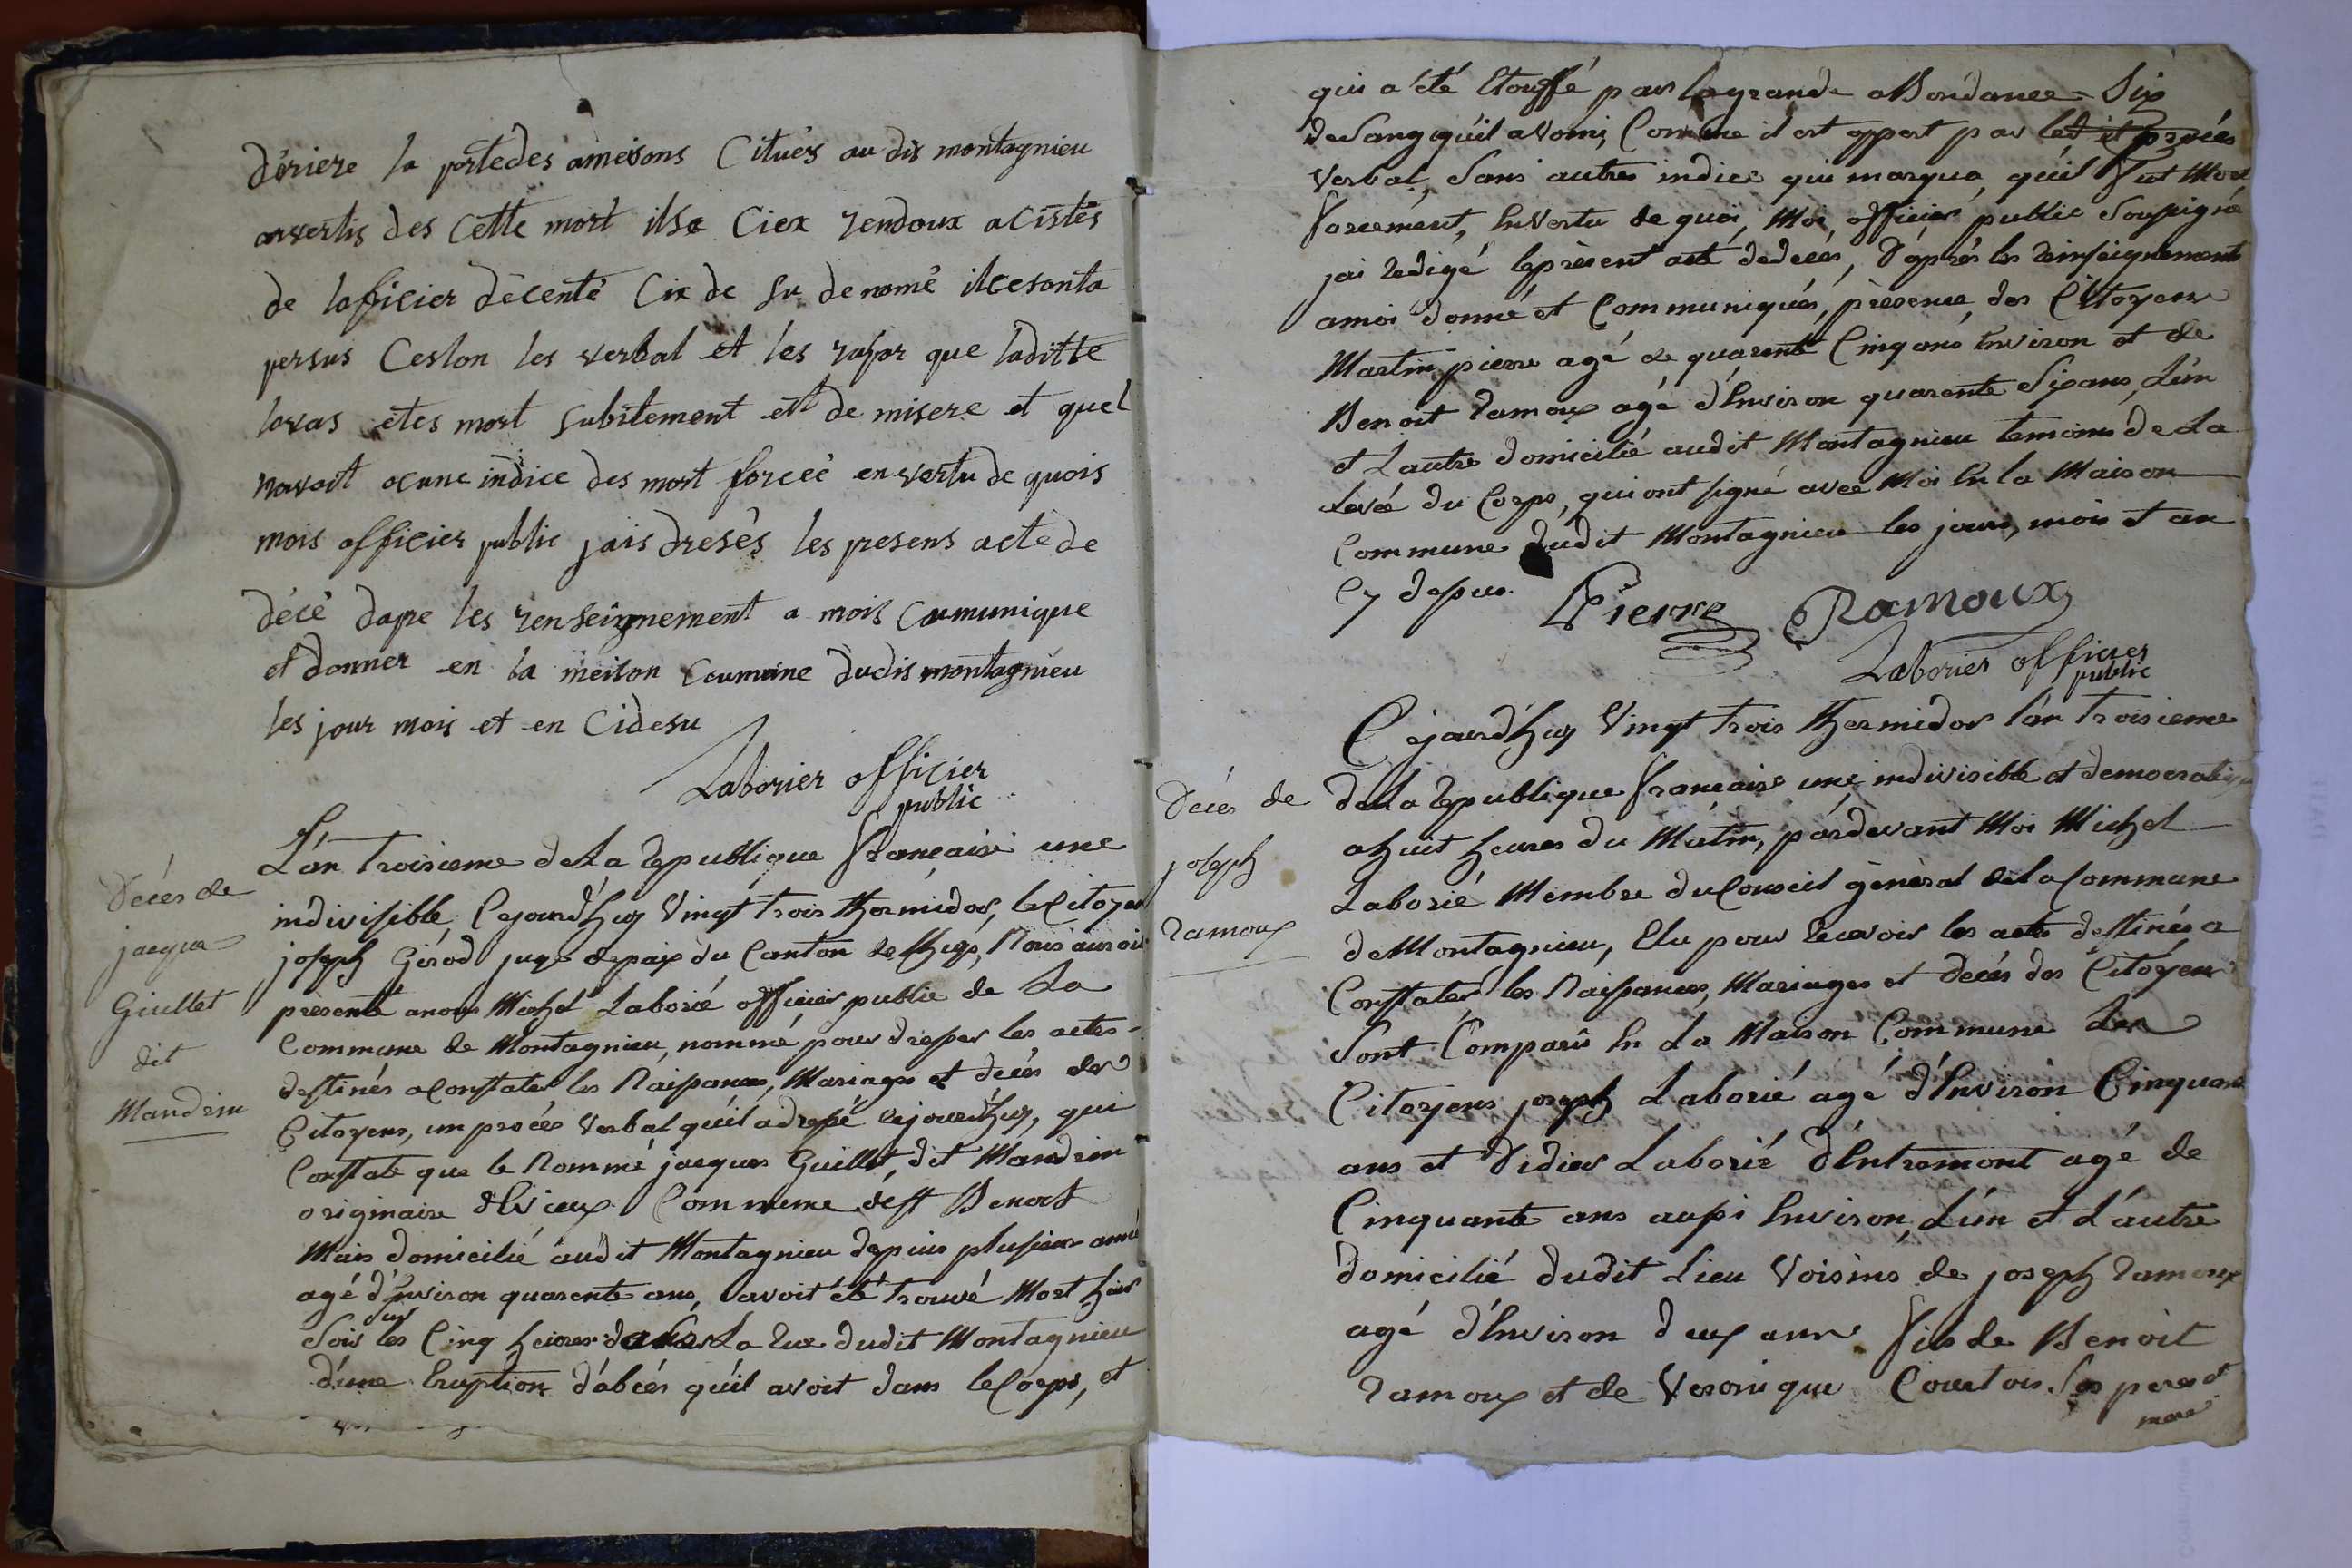 dériere la porte des ameisons Citués au dis montagnieu
arvertis des Cette mort ilse Ciex rendoux acistés
de lofficier décenté Cix de su denomé ilcesonta
persus Ceslon les verbal et les rapor que laditte
lovas etes mort subitement est de misere et quel
navoit ocune indice des mort forceé en vertu de quois
mois officier public jais dresés les presens acte de
décé dape les renseignement a mois Coumunique
et donner en la meison Coumune dudis montagnieu
les jour mois et en Cidesu
Laborier officier
public
Décés de
jacque
Guillet
dit
Mandrin
L'an troisieme de La Republique francaise une
indivisible, Cejourd'huy Vingt trois thermidor, le Citoyen
joseph Gérod juge de paix du Canton de Lhuys, Nous auroit
presenté a nous Michel Laborié officier public de La
Commune de Montagnieu, nommé pour dresser les actes
destinés a Constater les Naissances, Mariages et decés des
Citoyens, un procés Verbal qu'il a dressé cejourd'huy, qui
Constate que le Nommé jacques Guillet, dit Mandrin
originaire d'Evieux Commune de st Benoit
Mais domicilié audit Montagnieu depuis plusieur anné
agé d'Environ quarente ans, avoit été trouvé Mort hier
Soir sur les Cinq heures dans La rue dudit Montagnieu
d'une Eruption d'abcés qu'il avoit dans le Corps, et
qui a été Etouffé par la grande abondance Six
de Sang qu'il a vomi, Comme il est appert par ledit procés
Verbal, Sans autres indice qui marqua, qu'il fut Mort
forcement, En Vertu de quoi, Moi, officier public Soussigné
jai redigé le présent acte de decés, d'aprés les renseignements
a moi donné et Communiqués, présence, des Citoyens
Martin pierre agé de quarente Cinq ans Environ et de
Benoit Ramoux agé d'Environ quarente Six ans, L'un
et L'autre domicilié audit Montagnieu temoins de La
Levée du Corps, qui ont signé avec Moi En la Maison
Commune dudit Montagnieu les jours, mois et an
Cy dessus.
Pierre Ramoux
Laborier officier
public
Décés de
joseph
Ramoux
Cejourd'huy Vingt trois thermidor l'an troisieme
de La republique francaise une, indivisible et democratique
a huit heures du Matin, pardevant Moi Michel
Laborié Membre du Conseil général de la Commune
de Montagnieu, Elu pour recevoir les actes destinés a
Constater les Naissances, Mariages et decés des Citoyens
Sont Comparû En La Maison Commune Les
Citoyens joseph Laborié agé d'Environ Cinquante
ans et Didier Laborié d'Entremont agé de
Cinquante ans aussi Environ, L'un et L'autre
domicilié dudit Lieu Voisins de joseph Ramoux
agé d'Environ deux ans fils de Benoit
Ramoux et de Veronique Courtois Ses pere et
mere